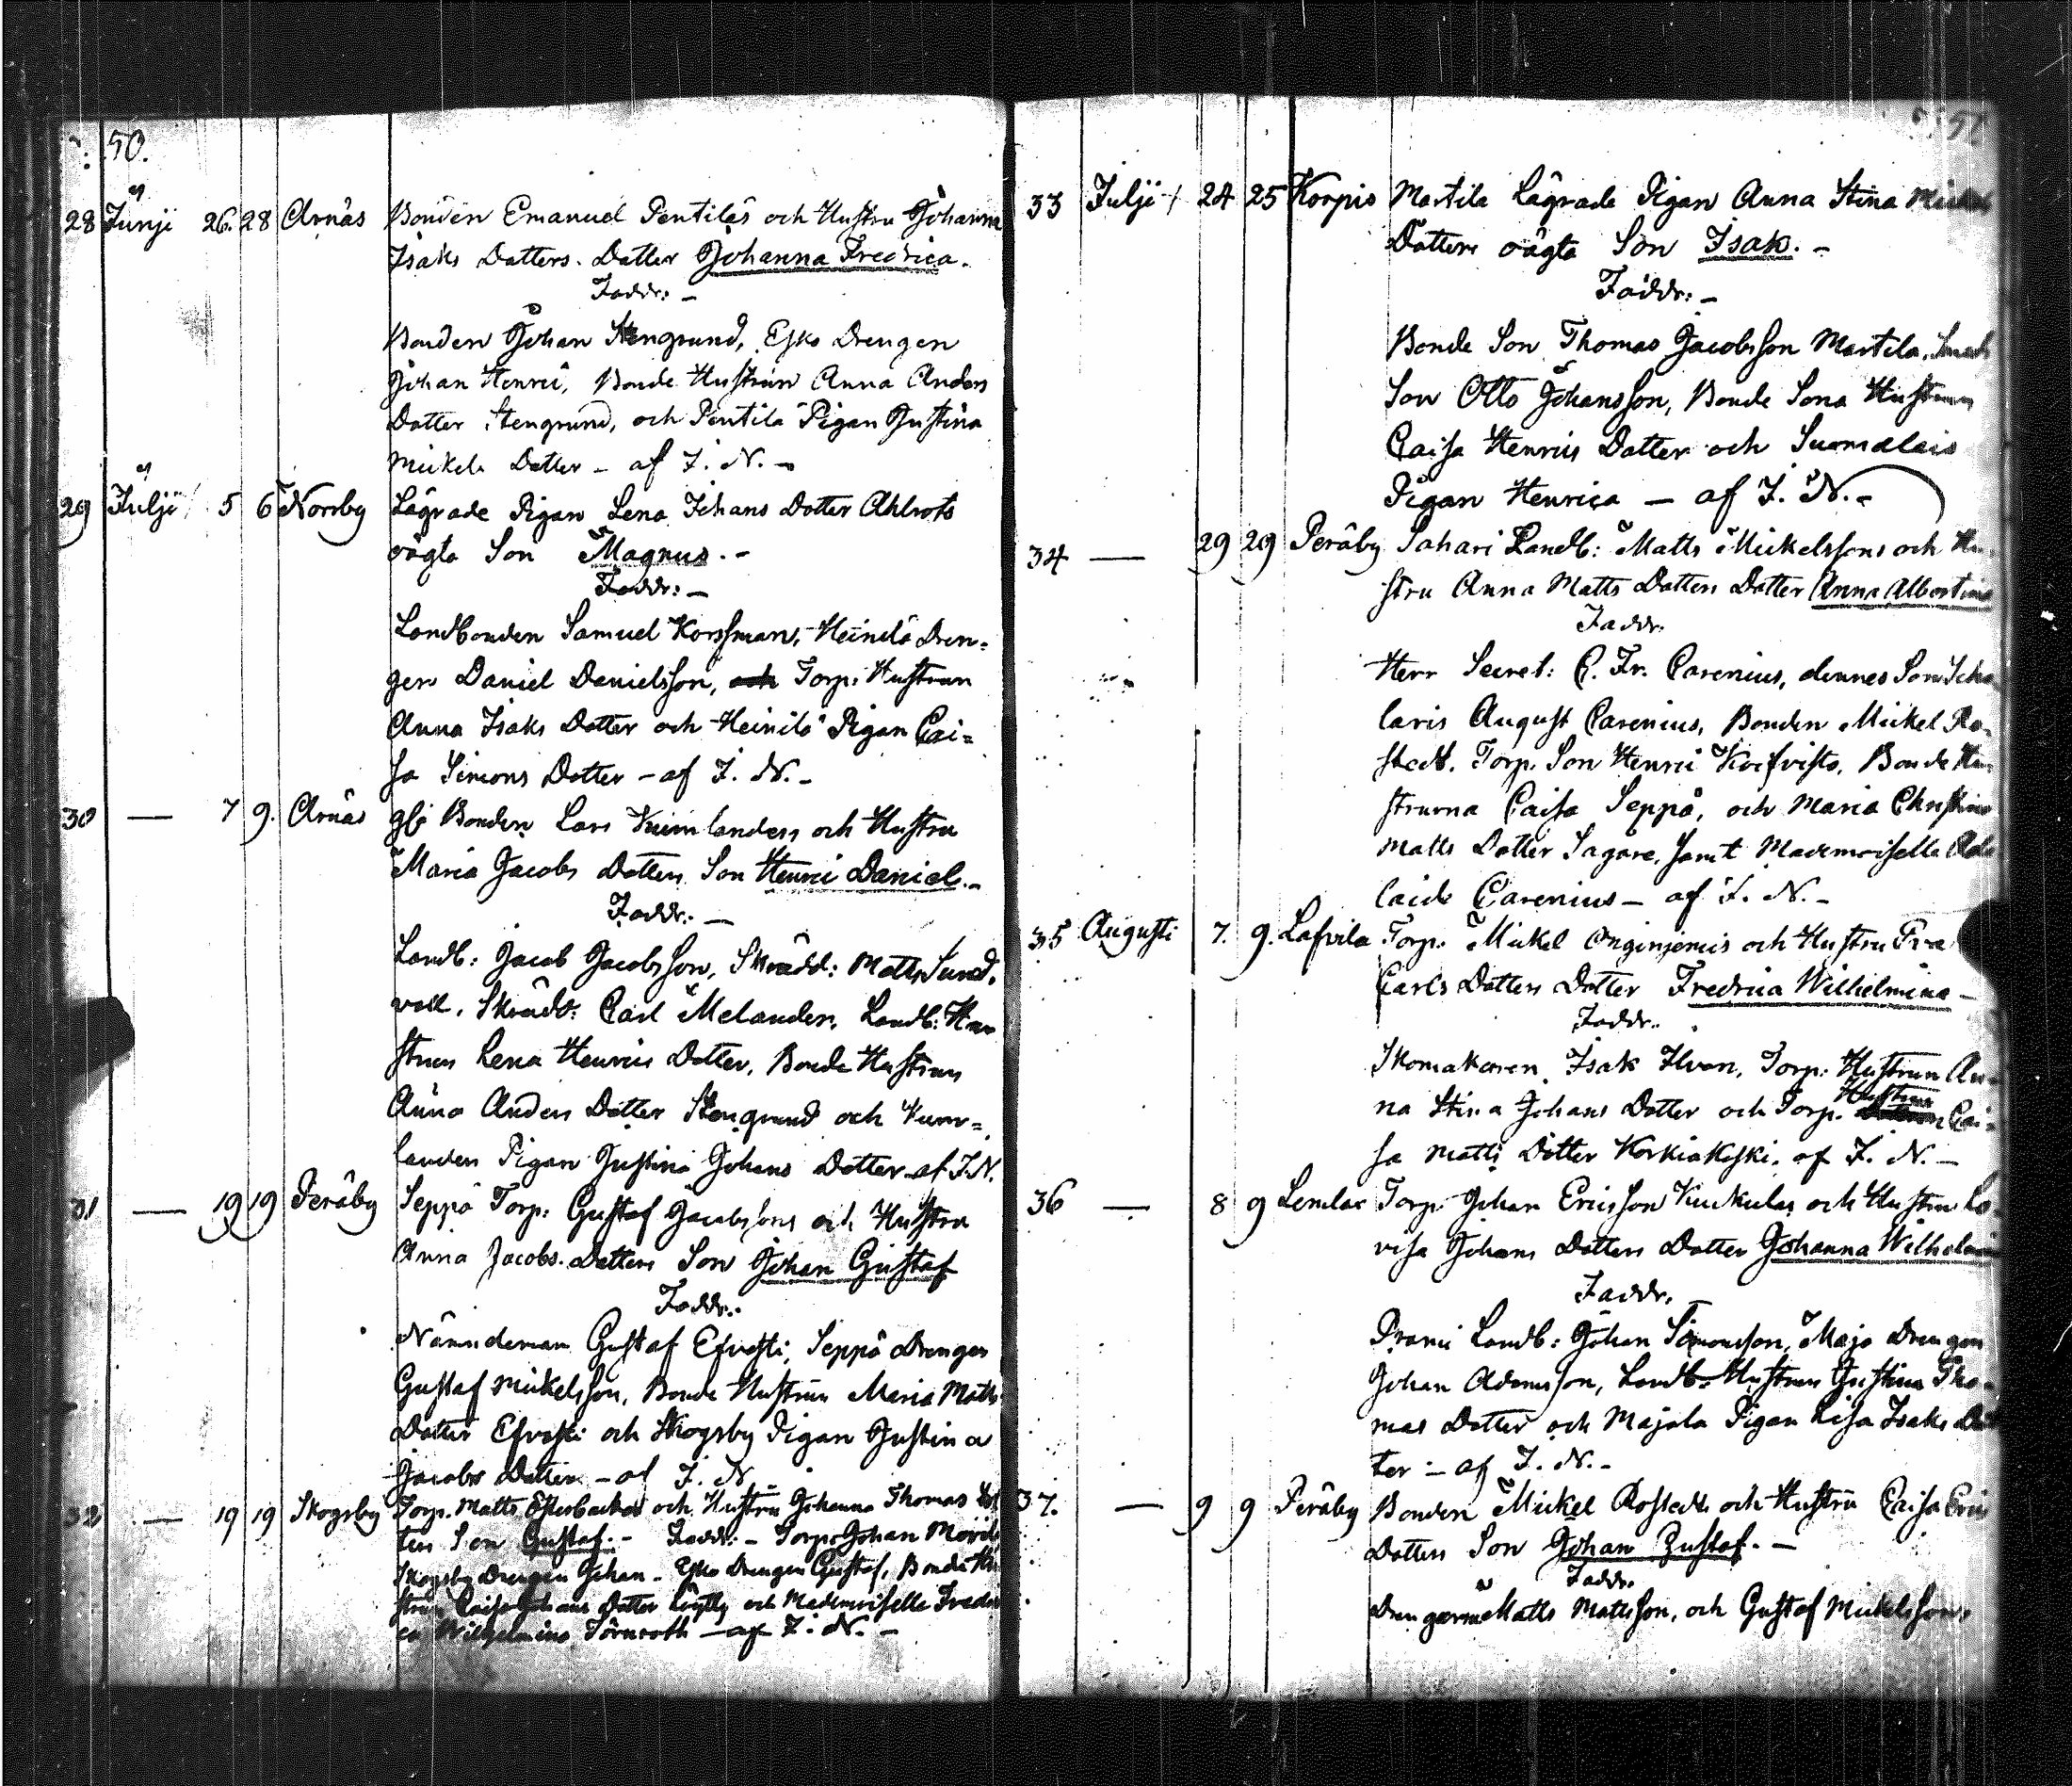 50.
28 Junji 26. 28 Arnäs Bonden Emanuel Pentiläs och Hustru Johanna
Isaks Datters. Datter Johanna Fredrica.
Faddr: –
Bonden Johan Stengrund, Esko Drengen
Johan Henrici, Bonde Hustrun Anna Anders
Datter Stengrund, och Pentilä Pigan Justina
Mickels Datter – af I. N. –
29 Julji 5 6 Norrby Lägrade Pigan Lena Johans Datter Ahlrots
oägta Son Magnus. –
Faddr: –
Landbonden Samuel Korssman, Heinilä Dren-
gen Daniel Danielsson, Torp: Hustrun
Anna Isaks Datter och Heinilä Pigan Cai-
sa Simons Datter – af I. N. –
30 — 7 9. Arnäs Bonden Lars Kumlanders och Hustru
Maria Jacobs Datters Son Henric Daniel. –
Faddr: –
Landb: Jacob Jacobsson, Skrädd: Matts Sund-
vall, Skrädd: Carl Melander, Landb: Hu-
strun Lena Henrics Datter, Bonde Hustrun
Anna Anders Datter Stengrund och Kum-
landers Pigan Justina Johans Datter – af I. N.
31 — 19 19 Peräby Seppä Torp: Gustaf Jacobssons och Hustru
Anna Jacobs Datters Son Johan Gustaf
Faddr:
Nämndeman Gustaf Efvesti, Seppä Drengen
Gustaf Mickelsson, Bonde Hustrun Maria Matts
Datter Efvesti och Skogsby Pigan Justina
Jacobs Datter – af I. N. –
32 — 19 19 Skogsby Torp. Matts Österbackas och Hustru Johanna Thomas Dot
ters Son Gustaf. – Faddr: – Torp: Johan
Skogsby Drengen Johan – Esko Drengen Gustaf, Bonde Hu
strun Caisa Johans Datter och Mademoiselle Fredri
ca Wilhelmina Törnroth – af I. N. –
51
33 Julji 24 25 Korpis Martila Lägrade Pigan Anna Stina Mickels
Datters oägta Son Isak. –
Faddr: –
Bonde Son Thomas Jacobsson Martila,
Son Otto Johansson, Bonde Sona Hustrun
Caisa Henrics Datter och Suomalais
Pigan Henrica – af I. N. –
34 — 29 29 Peräby Sahari Landb: Matts Mickelssons och Hu-
stru Anna Matts Datters Datter Anna Albertina
Faddr.
Herr Secret: C. Fr. Carenius, dennes Son Scho-
laris August Carenius, Bonden Mickel Ro-
stedt, Torp. Son Henric Koifvisto, Bonde Hu-
strurna Caisa Seppä, och Maria Christina
Matts Datter Sagare, samt Mademoiselle Ade
laide Carenius – af I. N. –
35 Augusti 7. 9. Lafvila Torp: Mickel Onginjemis och Hustru Eva
Carls Datters Datter Fredrica Wilhelmina –
Faddr.
Skomakaren Isak Ilvan, Torp: Hustrun An-
Hustrun
na Stina Johans Datter och Torp. Cai-
sa Matts Datter Korkiakoski. af I. N. –
36 — 8 9 Lemlax Torp. Johan Ericsson Kuckulas och Hustru Lo-
visa Johans Datters Datter Johanna Wilhelmina
Faddr.
Landb: Johan Simonsson, Majo Drengen
Johan Adamsson, Landb. Hustrun Justina Tho-
mas Datter och Majala Pigan Lisa Isaks Dat
ter – af I. N. –
37. — 9 9 Peräby Bonden Mickel Rostedts och Hustru Caisa Erics
Datters Son Johan Gustaf. –
Faddr.
Drengarne Matts Mattsson, och Gustaf Mickelsson,